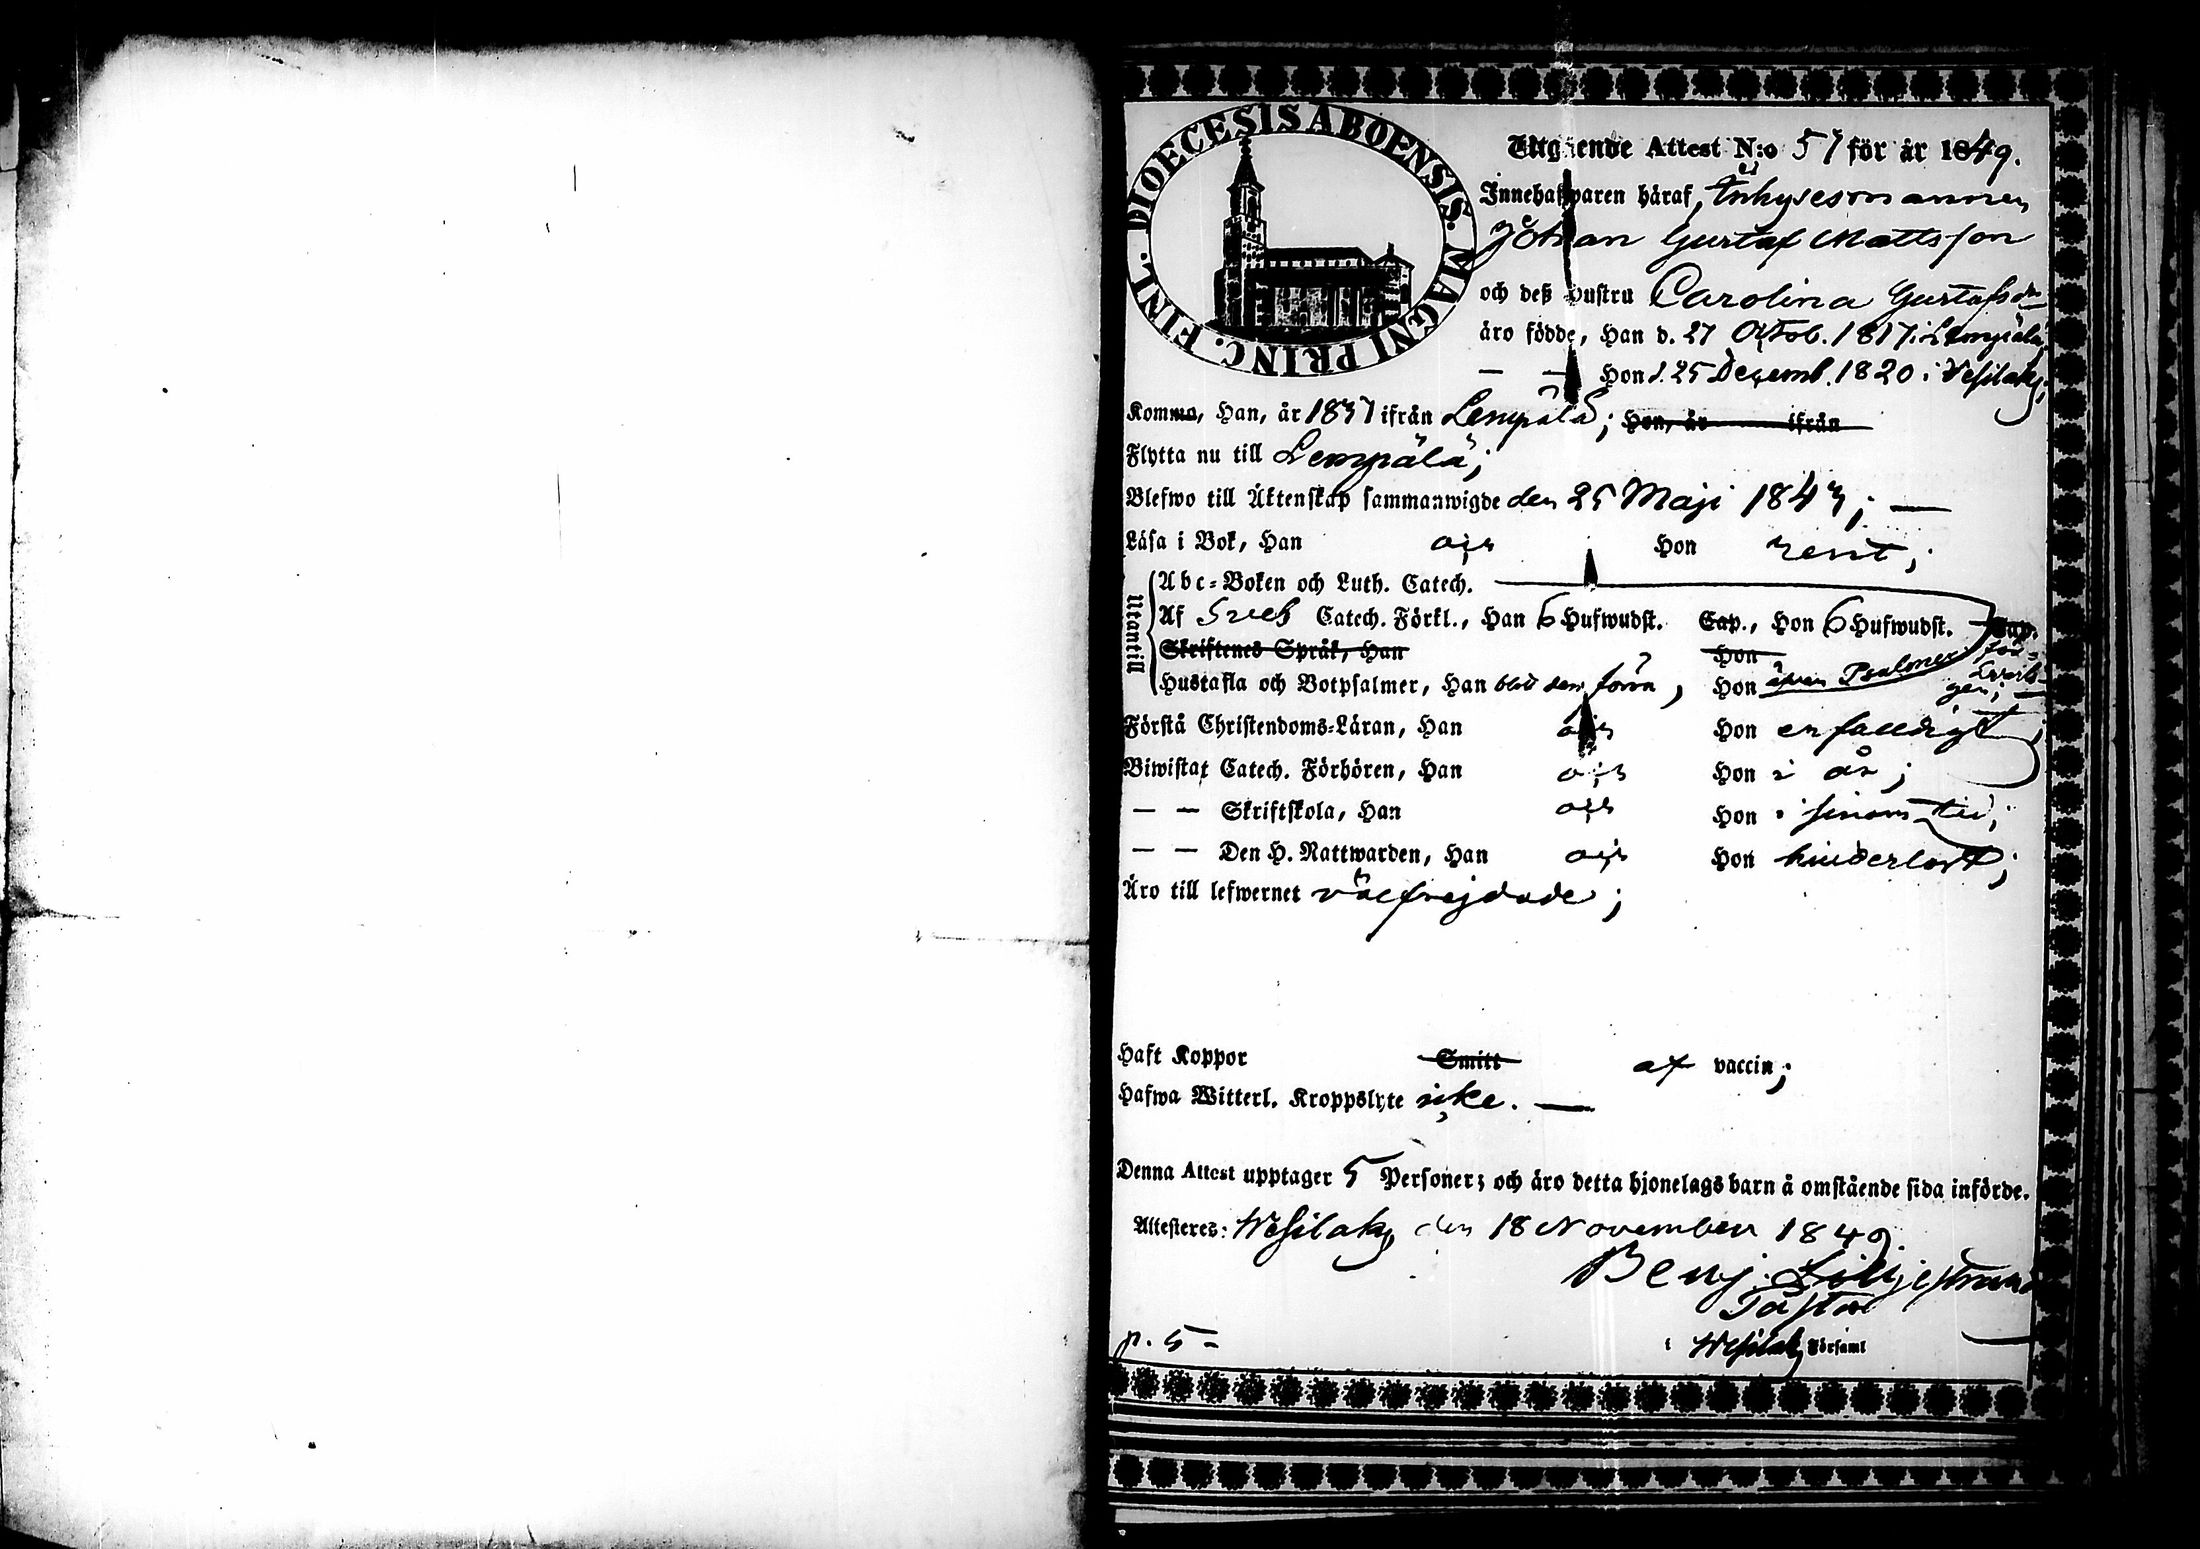 DIOECESIS ABOENSIS. MAGNI PRINC. FINL.
Utgående Attest N:o 57 för år 1849.
Innehafwaren häraf, Inhysesmannen
Johan Gustaf Mattsson
och deß hustru Carolina Gustafsdr
äro födde, Han d. 27 Oktob. 1817 i Lempälä,
— — Hon d. 25 Decemb. 1820 i Vesilaks,
Komma, Han, år 1837 ifrån Lempälä; Hon, år ifrån
Flytta nu till Lempälä;
Blefwo till Äktenskap sammanwigde den 25 Maji 1843; —
Läsa i Bok, Han Hon rent;
Utantill
Abc-Boken och Luth. Catech.
Af Sveb Catech. Förkl., Han 6 Hufwudst. Cap., Hon 6 Hufwudst. Cap.
Skriftenes Språk, Han Hon
Hustafla och Botpsalmer, Han blott den förra, Hon äfven Psalmer
Förstå Christendoms-Läran, Han Hon enfalldigt;
Biwistat Catech. Förhören, Han Hon i år;
— — Skriftskola, Han Hon i sinom tid;
— — Den H. Nattwarden, Han Hon hinderlöst;
Äro till lefwernet välfrejdade;
Haft Koppor Smitt af vaccin;
Hafwa Witterl. Kroppslyte icke. —
Denna Attest upptager 5 Personer; och äro detta hjonelags barn å omstående sida införde.
Attesteres: Wesilaks den 18 November 1849
Benj. Liljestrand
Pastor
p. 5 = i Wesilaks Församl